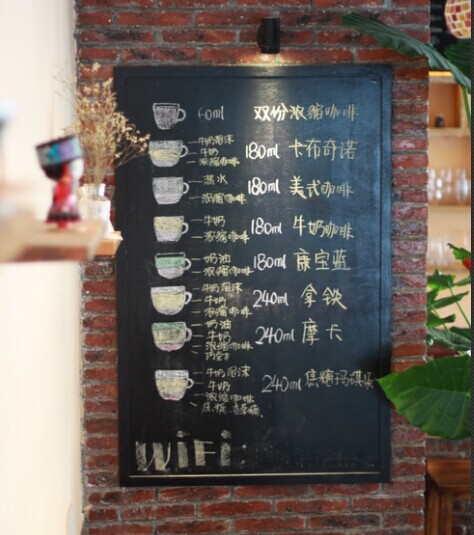 60ml 双份浓缩咖啡
牛奶泡沫
牛奶
浓缩咖啡
180ml 卡布奇诺
蒸水
浓缩咖啡
180ml 美式咖啡
牛奶
浓缩咖啡
180ml 牛奶咖啡
奶油
浓缩咖啡
180ml 康宝蓝
牛奶泡沫
牛奶
浓缩咖啡
240ml 拿铁
奶油
牛奶
浓缩咖啡
240ml 摩卡
牛奶泡沫
牛奶
浓缩咖啡
240ml 焦糖玛琪朵
WiFi: